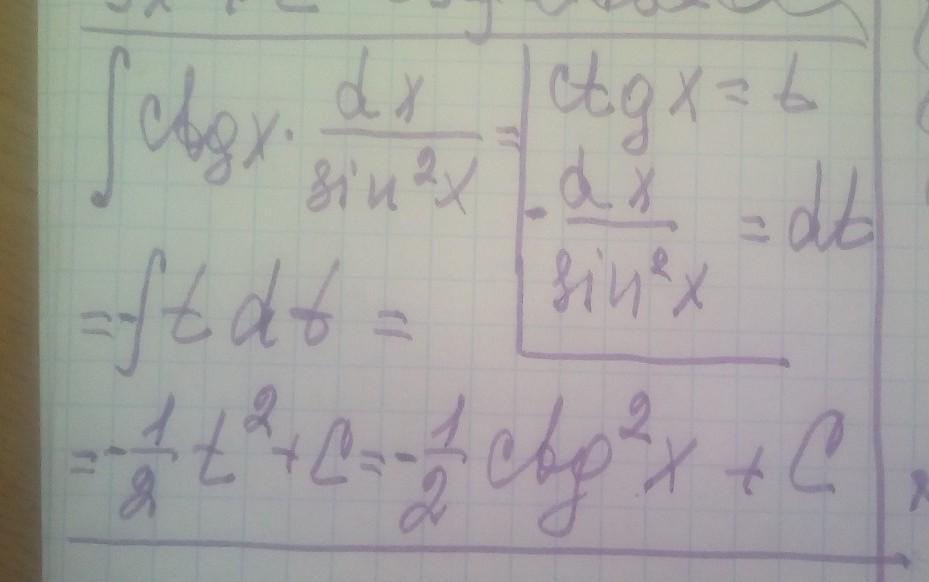 ∫ ctg x · dx/sin²x = | ctg x = t
- dx/sin²x = dt
= -∫ t dt =
= -1/2 t² + C = -1/2 ctg² x + C